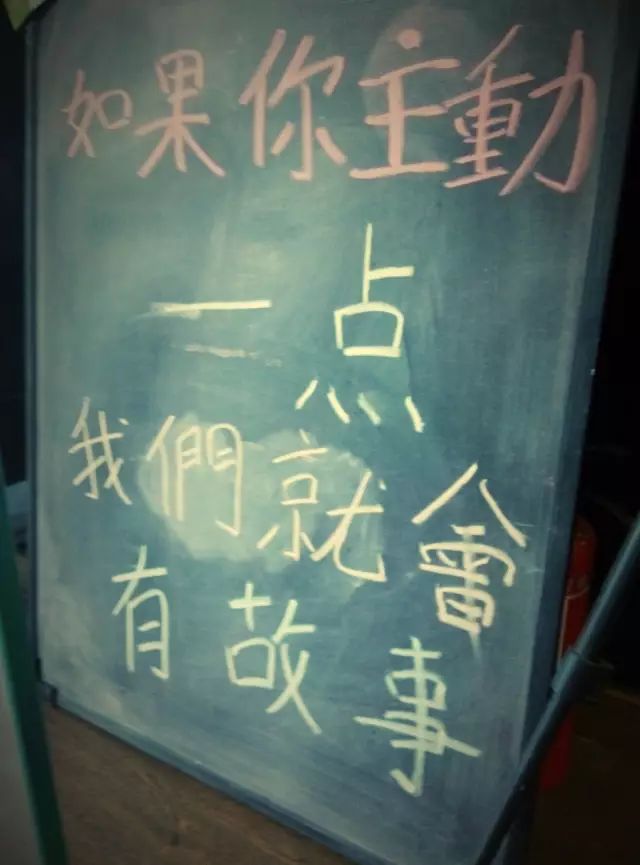 如果你主動
一点
我們就會
有故事